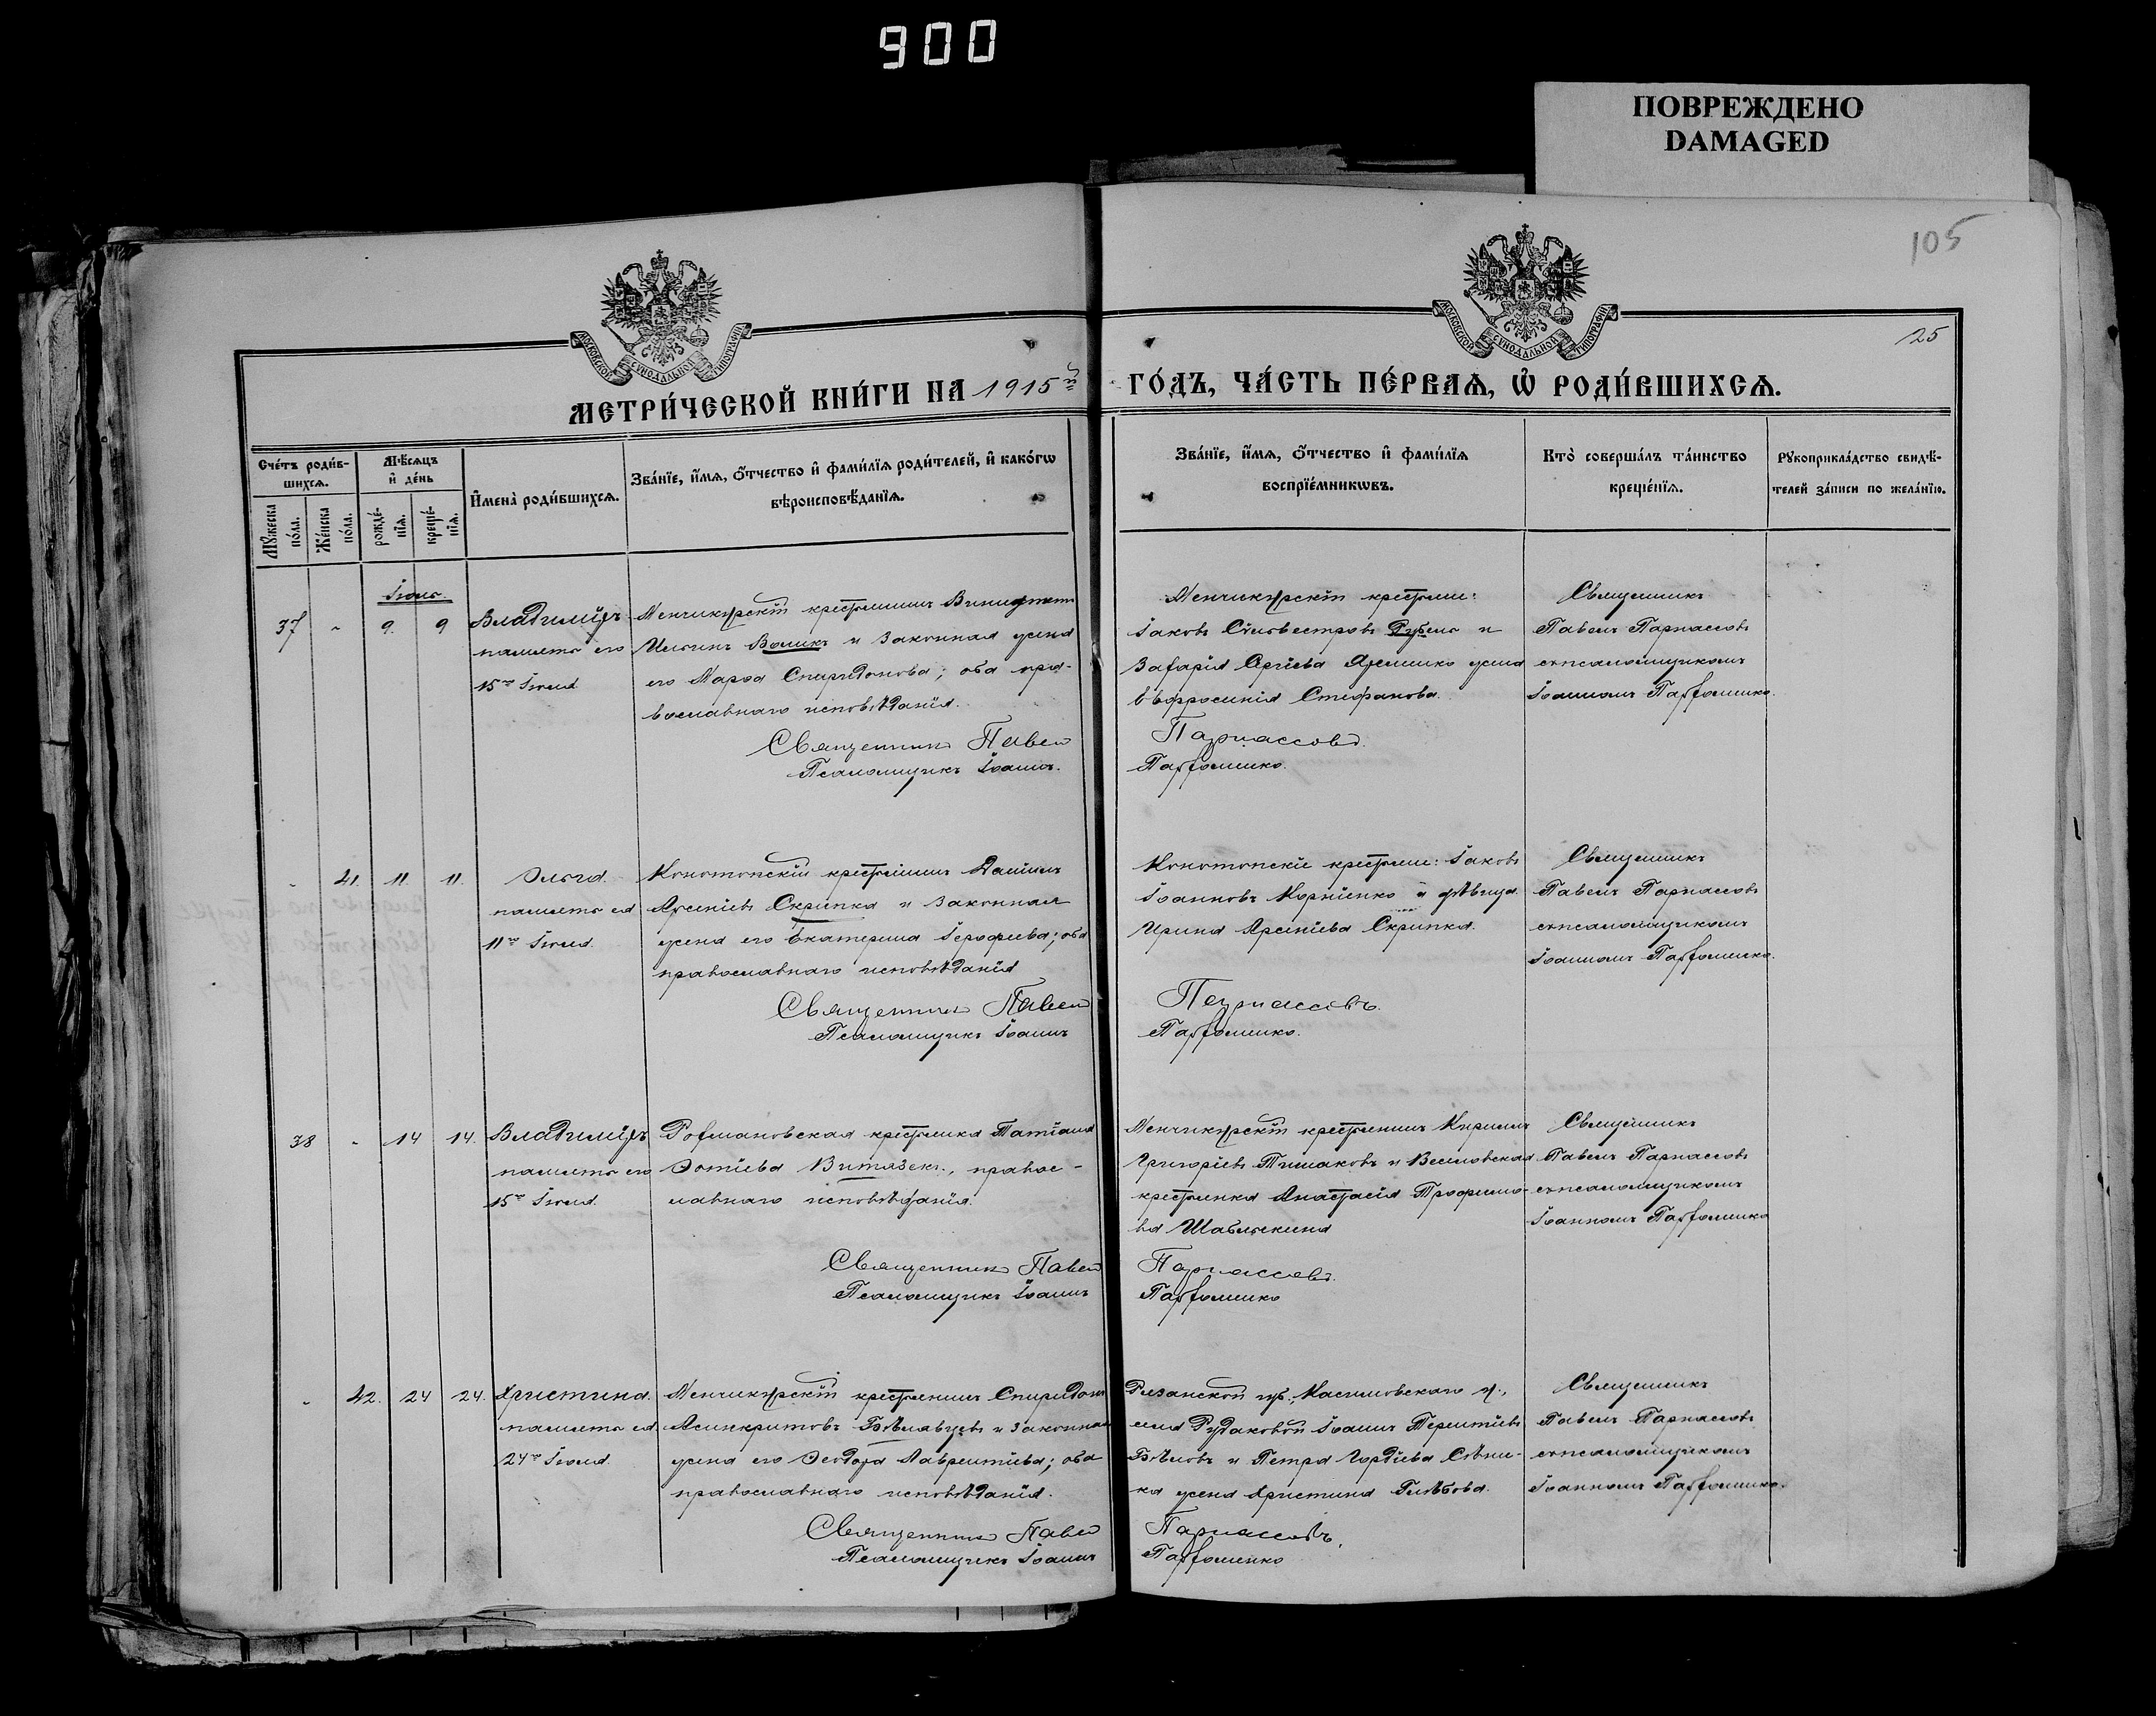 900
ПОВРЕЖДЕНО
DAMAGED
105
25
МОСКОВСКОЙ СѴНОДАЛЬНОЙ ТИПОГРАФІИ
МОСКОВСКОЙ СѴНОДАЛЬНОЙ ТИПОГРАФІИ
МЕТРИ́ЧЕСКОЙ КНИ́ГИ НА 1915й ГО́ДЪ, ЧА́СТЬ ПЕ́РВАѦ, Ѡ҆ РОДИ́ВШИХСѦ.
Сче́тъ роди́в-
шихсѧ.
Мꙋ́жеска по́ла.
Же́нска по́ла.
Мѣ́сѧцъ
и҆ де́нь
рожде́-
нїѧ.
креще́-
нїѧ.
И҆мена̀ роди́вшихсѧ.
Зва́нїе, и҆́мѧ, ѻ҆́тчество и҆ фами́лїѧ роди́телей, и҆ како́гѡ
вѣроисповѣ́данїѧ.
Зва́нїе, и҆́мѧ, ѻ҆́тчество и҆ фами́лїѧ
воспрїе́мникѡвъ.
Кто̀ соверша́лъ та́инство
креще́нїѧ.
Рꙋкоприкла́дство свидѣ́-
телей за́писи по жела́нїю.
Іюль.
37 - 9. 9
Владиміръ
память его
15го Іюля
Менчикурскій крестьянинъ
Ильинъ Воликъ и законная жена
его Марѳа Спиридонова; оба пра-
вославнаго исповѣданія.
Священникъ Павелъ
Псаломщикъ Іоаннъ.
Менчикурскій крестьян:
Іаковъ Сильвестровъ и
жена
Евфросинія Стефанова.
Парнассовъ.
Парфоменко.
Священникъ
Павелъ Парнассовъ
съ псаломщикомъ
Іоанномъ Парфоменко.
- 41. 11. 11.
Ольга.
память ея
11го Іюля.
Конотопскій крестьянинъ Даніилъ
Арсеніевъ Скрипка и законная
жена его Екатерина Іерофеева; оба
православнаго исповѣданія
Священникъ Павелъ
Псаломщикъ Іоаннъ
Конотопскіе крестьяне: Іаковъ
Іоанновъ Корніенко и дѣвица
Ирина Арсеніева Скрипка.
Парнассовъ.
Парфоменко.
Священникъ
Павелъ Парнассовъ
съ псаломщикомъ
Іоанномъ Парфоменко.
38 - 14 14.
Владиміръ
память его
15го Іюля.
Рогмановская крестьянка Татіана
Фотіева Витязекъ, правос-
лавнаго исповѣданія.
Священникъ Павелъ
Псаломщикъ Іоаннъ
Менчикурскій крестьянинъ Кириллъ
Григорьевъ Тимаковъ и Веселовская
крестьянка Анастасія Трофимо-
ва Шаблыкина
Парнассовъ.
Парфоменко
Священникъ
Павелъ Парнассовъ
съ псаломщикомъ
Іоанномъ Парфоменко
- 42. 24 24.
Христина.
память ея
24го Іюля.
Менчикурскій крестьянинъ Спиридонъ
Асинкритовъ Бѣлявцевъ и законная
жена его Ѳеодора Лаврентіева; оба
православнаго исповѣданія.
Священникъ Павелъ
Псаломщикъ Іоаннъ
Рязанской губ., Касимовскаго у.,
села Рудаковой Іоаннъ Терентіевъ
Бѣловъ и Петра Гордіева
жена Христина Глѣбова.
Парнассовъ.
Парфоменко
Священникъ
Павелъ Парнассовъ
съ псаломщикомъ
Іоанномъ Парфоменко.